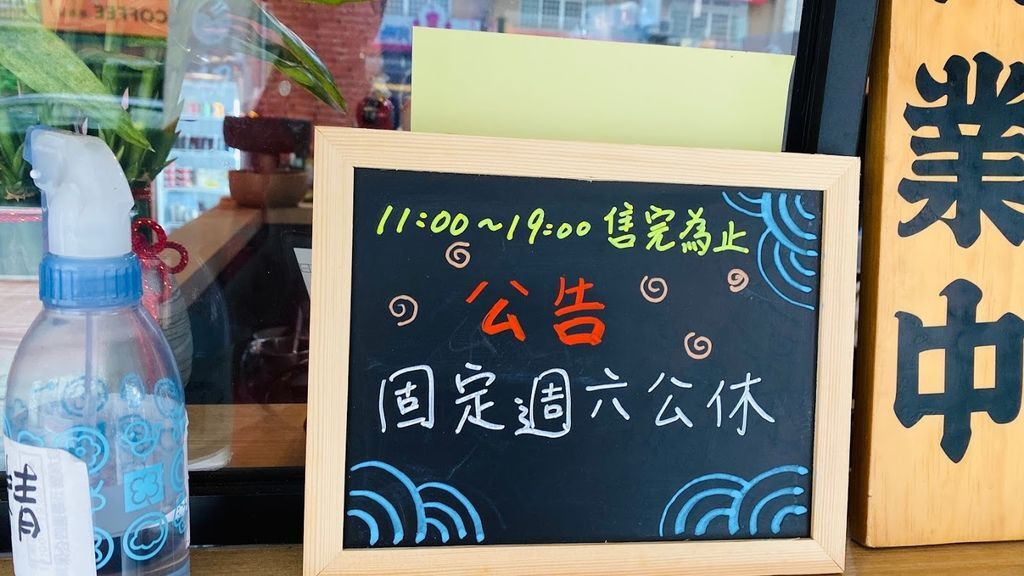 COFFEE
11:00~19:00 售完為止
公告
固定週六公休
業中